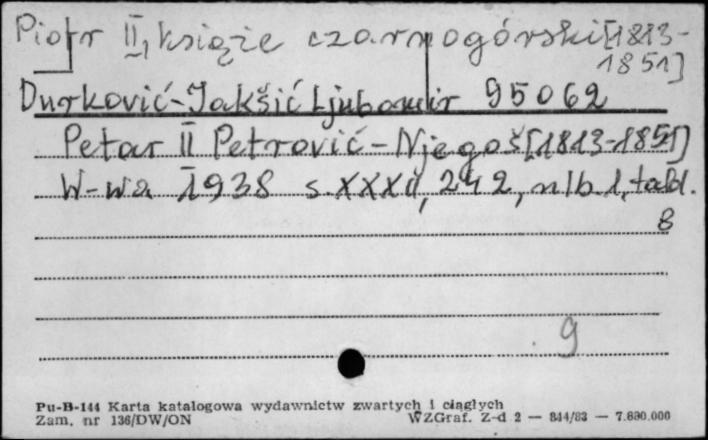 Piotr II, książe czarnogórski [1813-
1851]
Durković-Jakšić Ljubomir 95062
Petar II Petrović-Njegoš [1813-1851]
W-wa 1938 s. XXXII, 242, nlb. 1, tabl.
8
9
Pu-B-144 Karta katalogowa wydawnictw zwartych i ciągłych
Zam. nr 136/DW/ON WZGraf. Z-d 2 — 844/83 — 7.690.000